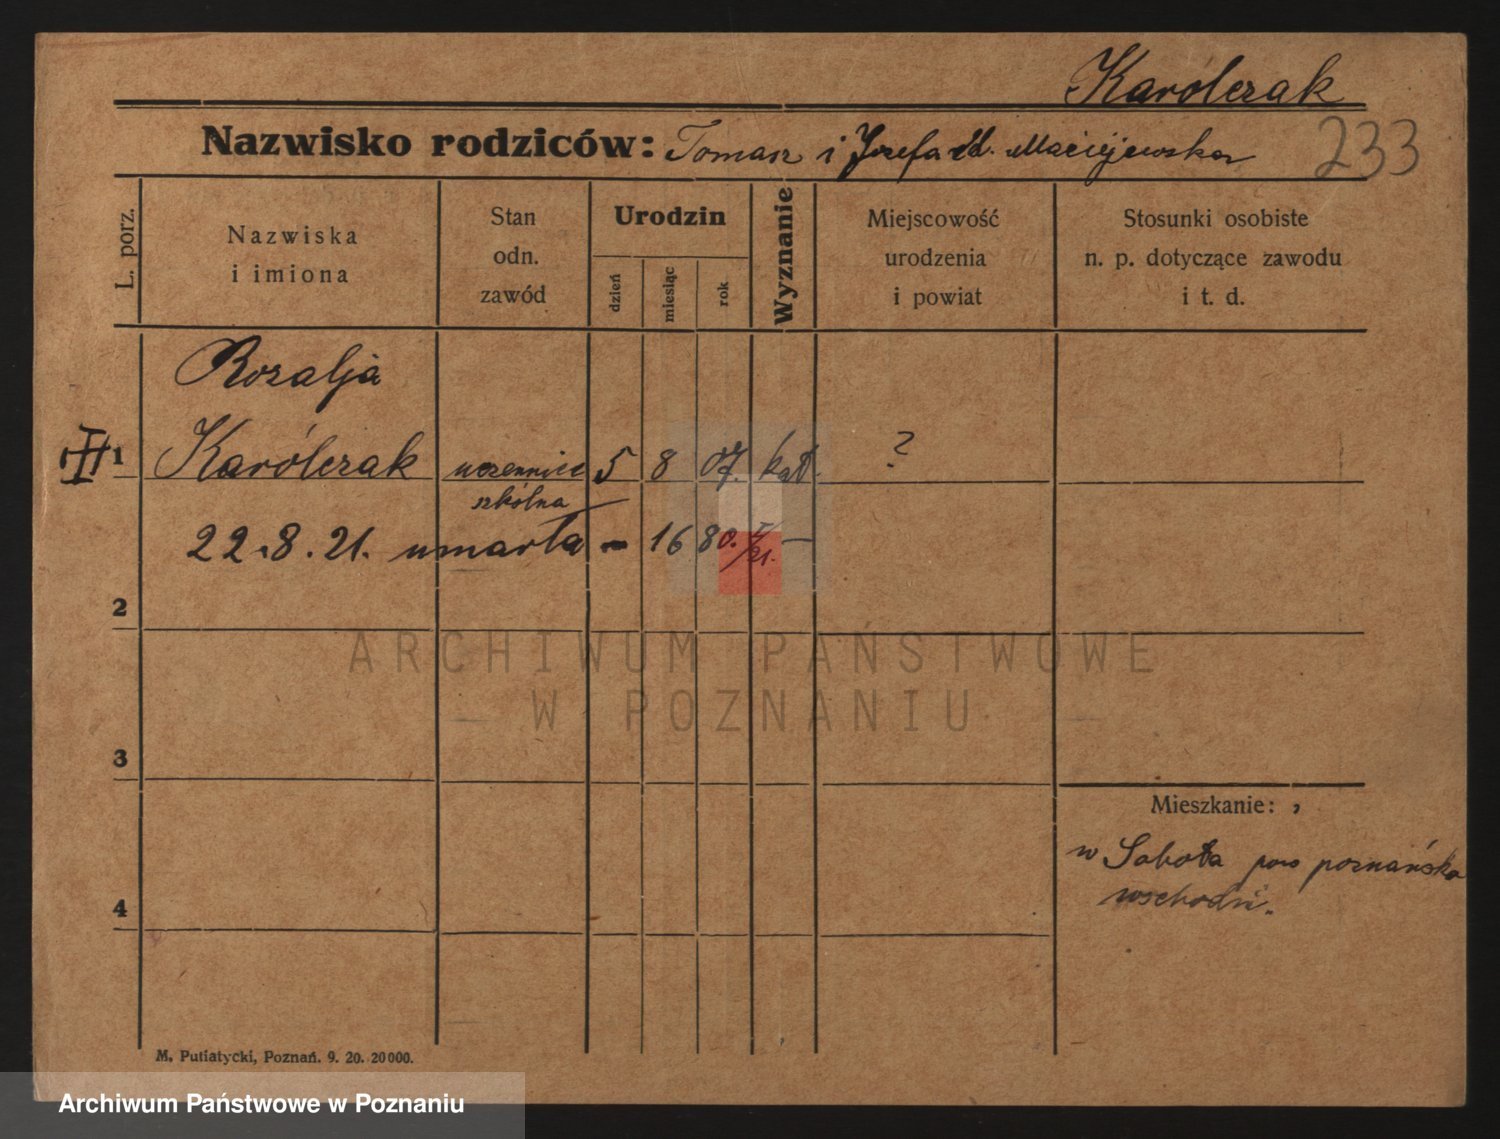 Karólczak
Nazwisko rodziców: Tomasz i Józefa zd. Maciejewska
233
L. porz.
Nazwiska
i imiona
Stan
odn.
zawód
Urodzin
dzień
miesiąc
rok
Wyznanie
Miejscowość
urodzenia
i powiat
Stosunki osobiste
n. p. dotyczące zawodu
i t. d.
Rozalja
1 Karólczak uczennica 5 8 07. kat. ?
szkólna
22.8.21. umarła - 1680. /21. -
2
ARCHIWUM PAŃSTWOWE
W POZNANIU
3
Mieszkanie: ,
w Sobota pow poznańska
wschodni.
4
M. Putiatycki, Poznań. 9. 20. 20000.
Archiwum Państwowe w Poznaniu